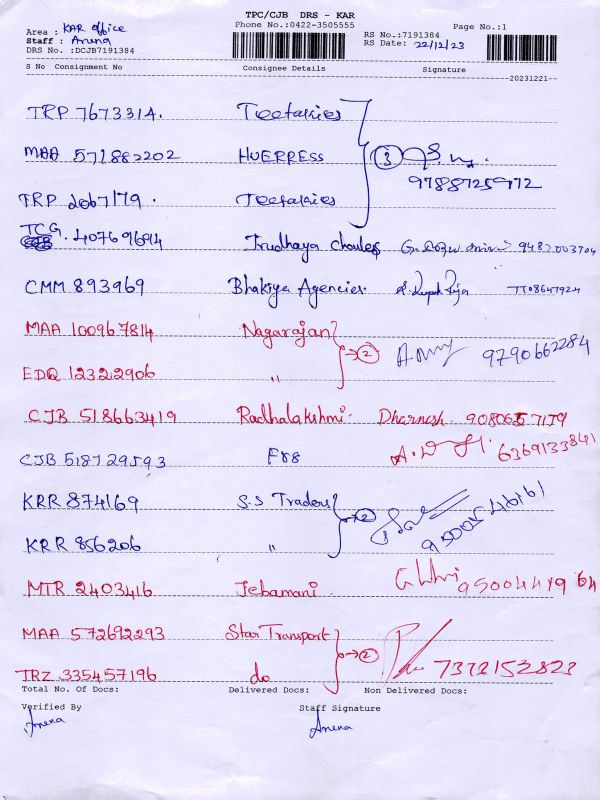 TPC/CJB DRS - KAR
Area : KAR office Phone No.:0422-3505555 RS No.:7191384 Page No.:1
Staff : Anena RS Date: 22/12/23
DRS No. :DCJB7191384
S No Consignment No Consignee Details Signature
20231221
TRP 7673314. Teetarries
MAA 571882202 HUERRESS 3
9788725972
TRP 2067179. Teetarries
TCG. 407696914 Irudhaya charles 9482003704
CMM 893969 Bhakiya Agencies.
MAA 100967814 Nagarajan
2 9790662284
EDQ 12322906 "
CJB 518663419 Radhalakshmi. Dharnesh. 9080657179
CJB 518729593 F88 6369133841
KRR 874169 S.S Traders 2
KRR 856206 "
MTR 2403416 Jebamani 9500441964
MAA 572692293 Star Transport
2 7373152823
TRZ 335457196 do
Total No. Of Docs: Delivered Docs: Non Delivered Docs:
Verified By Staff Signature
Anena Anena